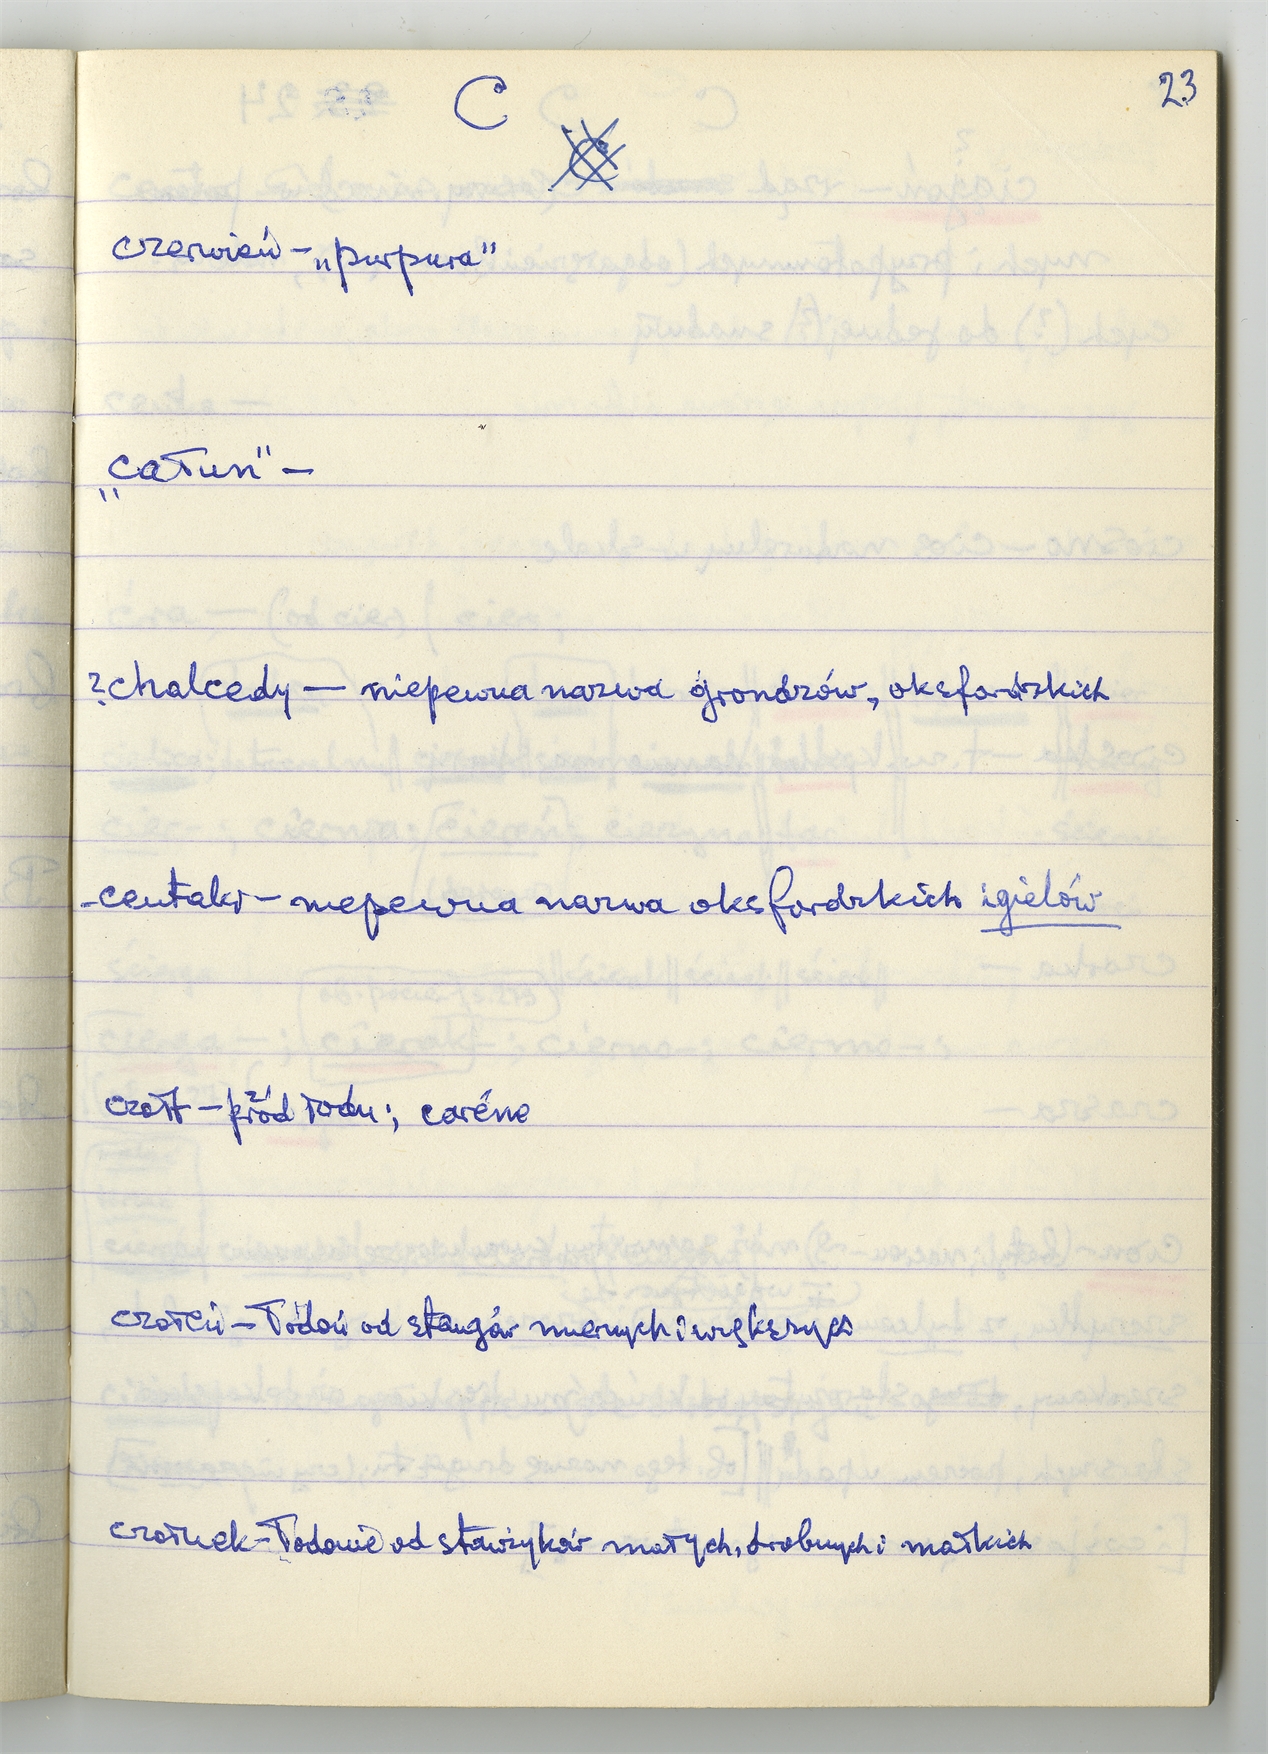 23
C
czerwień – „purpura"
„całun" –
? chalcedy — niepewna nazwa grondzów, oksfordzkich
- centaki – niepewna nazwa oksfordzkich igielów
czołt – przód łodu; caréne
czołeń – łódoń od stawgów miernych i większych
czołnek – łodonie od stawżyków małych, drobnych i małkich